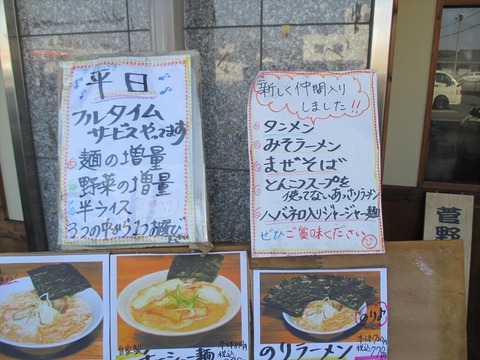 平日
フルタイム
サービスやってます
麺の増量
野菜の増量
半ライス
3つの中から1つお選び
新しく仲間入り
しました!!
タンメン
みそラーメン
まぜそば
とんこつスープを
使ってないあっさりラーメン
ハバネロ入りジャージャー麺
ぜひご賞味ください
菅野
自家製
チャーシュー麺
のり
のりラーメン